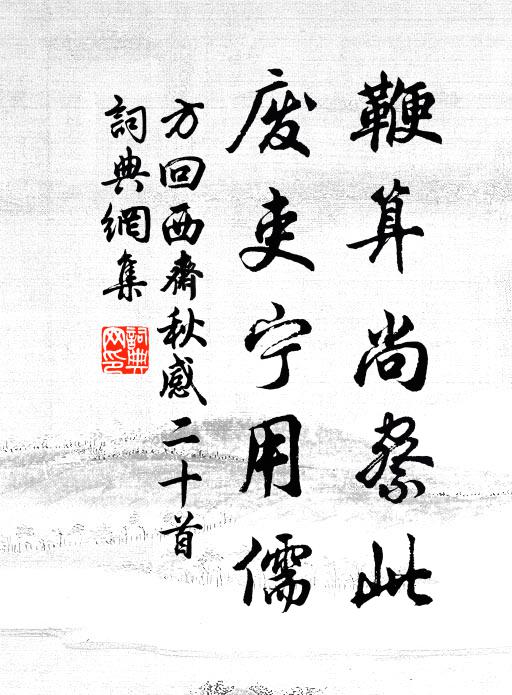 鞭算尚祭此
废吏宁用儒
方回西齋秋感二十首
詞典網集
詞典
网印